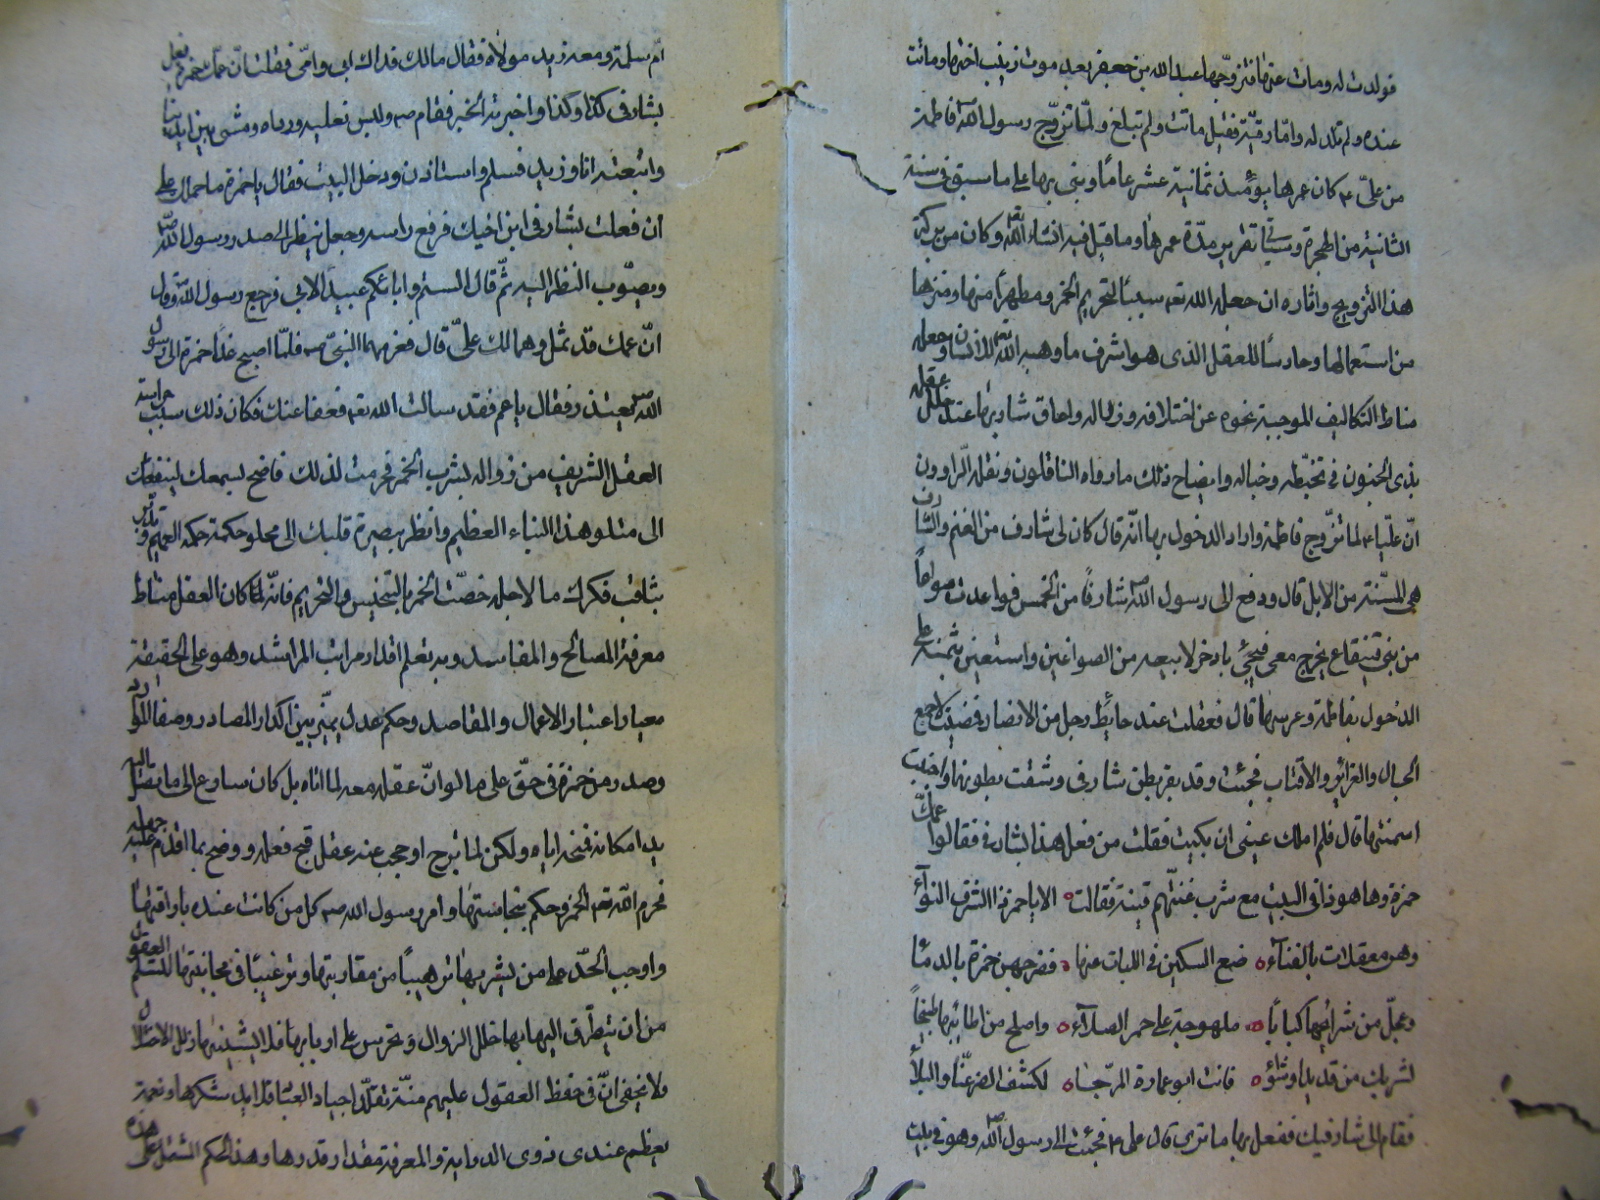 فولدت له ومات عنها فتزوجها عبد الله بن جعفر بعد موت زينب اختها وماتت
عنده ولم تلد له وامّا رقيّة فقيل ماتت ولم تبلغ ولمّا تزوّج رسول الله فاطمة
من علىّ ع كان عمرها يومئذ ثمانية عشر عامًا وبنى بها على ما سبق فى سنة
الثانية من الهجرة وسيأتى تقرير مدّة عمرها وما قيل فيه انشاء الله تع وكان من بركة
هذا التزويج واثاره ان جعله الله تع سببًا لتحريم الخمر ومطهرًا منها ومنزها
من استعمالها وحارسًا للعقل الذى هو اشرف ما وهبه الله تع للانسان وجعله
مناط التكاليف الموجبة نحوه عن اختلافه وزواله والحاق شاربها عند خلل عقله
بذى الجنون فى تخبّطه وخباله وايضاح ذلك ما رواه الناقلون ونقله الراوون
انّ عليّا ع لما تزوّج فاطمة واراد الدخول بها انّه قال كان لى شارف من الغنم والشارف
هى المسنّة من الابل قال ودفع الى رسول الله ص شارفًا من الخمس فواعدت صواغاً
من بنى قينقاع يخرج معى فيجئ باذخر لابيعه من الصواغين واستعين بثمنه على
الدخول بفاطمة وعرسها قال فعقلت عند حائط رجل من الانصار فضيت لاجمع
الحبال والغرائر والاقتاب فجئت وقد بقر بطن شارفى وشقت بطونها واجتبت
اسمنتها قال فلم املك عينى ان بكيت فقلت من فعل هذا بشارفى فقالوا عمّك
حمزة وها هو ذا فى البيت مع شرب غنّتهم قينة فقالت الا يا حمز ذا الشرف النوآء
وهن معقلات بالفنآء ضع السكين فى اللبات عنها فضرجهن حمزة بالدمآء
وعجّل من شرائحها كبابًا ملهوجة على جمر الصلآء واصلح من اطائبها طبيخًا
لشربك من قديد او شوآء فانت ابو عمارة المرجّا لكشف الضر عنّا والبلآء
فقام الى شارفيك ففعل بها ما ترى قال على ع فجئت الى رسول الله ص وهو فى بيت
امّ سلمة ومعه زيد مولاه فقال مالك فداك ابى وامّى فقلت انّ عمّك حمزة فعل
بشارفى كذا وكذا واخبرته الخبر فقام ص ولبس نعليه ورداه ومشى بين ايدينا
واتبعته انا وزيد فسلم واستاذن ودخل البيت فقال يا حمزة ما حملك على
ان فعلت بشارفى ابن اخيك فرفع راسه وجعل ينظر الى صدر رسول الله ص
ويصوّب النظر اليه ثمّ قال الستم واباءكم عبيد الابى فرجع رسول الله وقال
انّ عمك قد ثمل وهما لك علىّ قال فغرمهما النبىّ ص فلمّا اصبح غدا حمزة الى رسول
الله ص يعتذر فقال يا عم فقد سالت الله تع فعفا عنك فكان ذلك سبب حراسة
العقل الشريف من زواله بشرب الخمر فحرمت لذلك فاضح لسمعك لينفعك
الى متلو هذا النباء العظيم وانظر ببصيرة قلبك الى مجلو حكمة حكمه العميم وتدبّر
بثاقب فكرك ما لاجله خصّت الخمر بالتجنيس والتحريم فانّه لمّا كان العقل مناط
معرفة المصالح والمفاسد وبه تعلم اقدار مراتب المراشد وهو على الحقيقة
معيار اعتبار الاعمال والمقاصد وحكم عدل يميّز بين اكدار المصادر وصفا الموارد
وصدر من حمزة فى حقّ على ما لو انّ عقله معه لما اتاه بل كان يسارع الى ما يصل اليه
يد امكانه فيتحراياه ولكن لما برح او حجب عنه عقل قبح فعله ووضح بما اقدام عليه جهله
فحرم الله تع الخمر وحكم بنجاستها وامر رسول الله ص كل من كانت عنده باراقتها
واوجب الحدّ على من يشربها ترهيبًا من مقاربتها وترغيبًا فى مجانبتها لتسلم العقول
من ان يتطرّق اليها بها خلل الزوال وتحرس على اربابها فلا يشينها زلل الاختلال
ولا يخفى انّ فى حفظ العقول عليهم منّة تقلّد اجياد العباد قلايد شكرها ونعمة
يعظم عند ذوى الدراية والمعرفة مقدار قدرها وهذا الحكم المشتمل على هذه